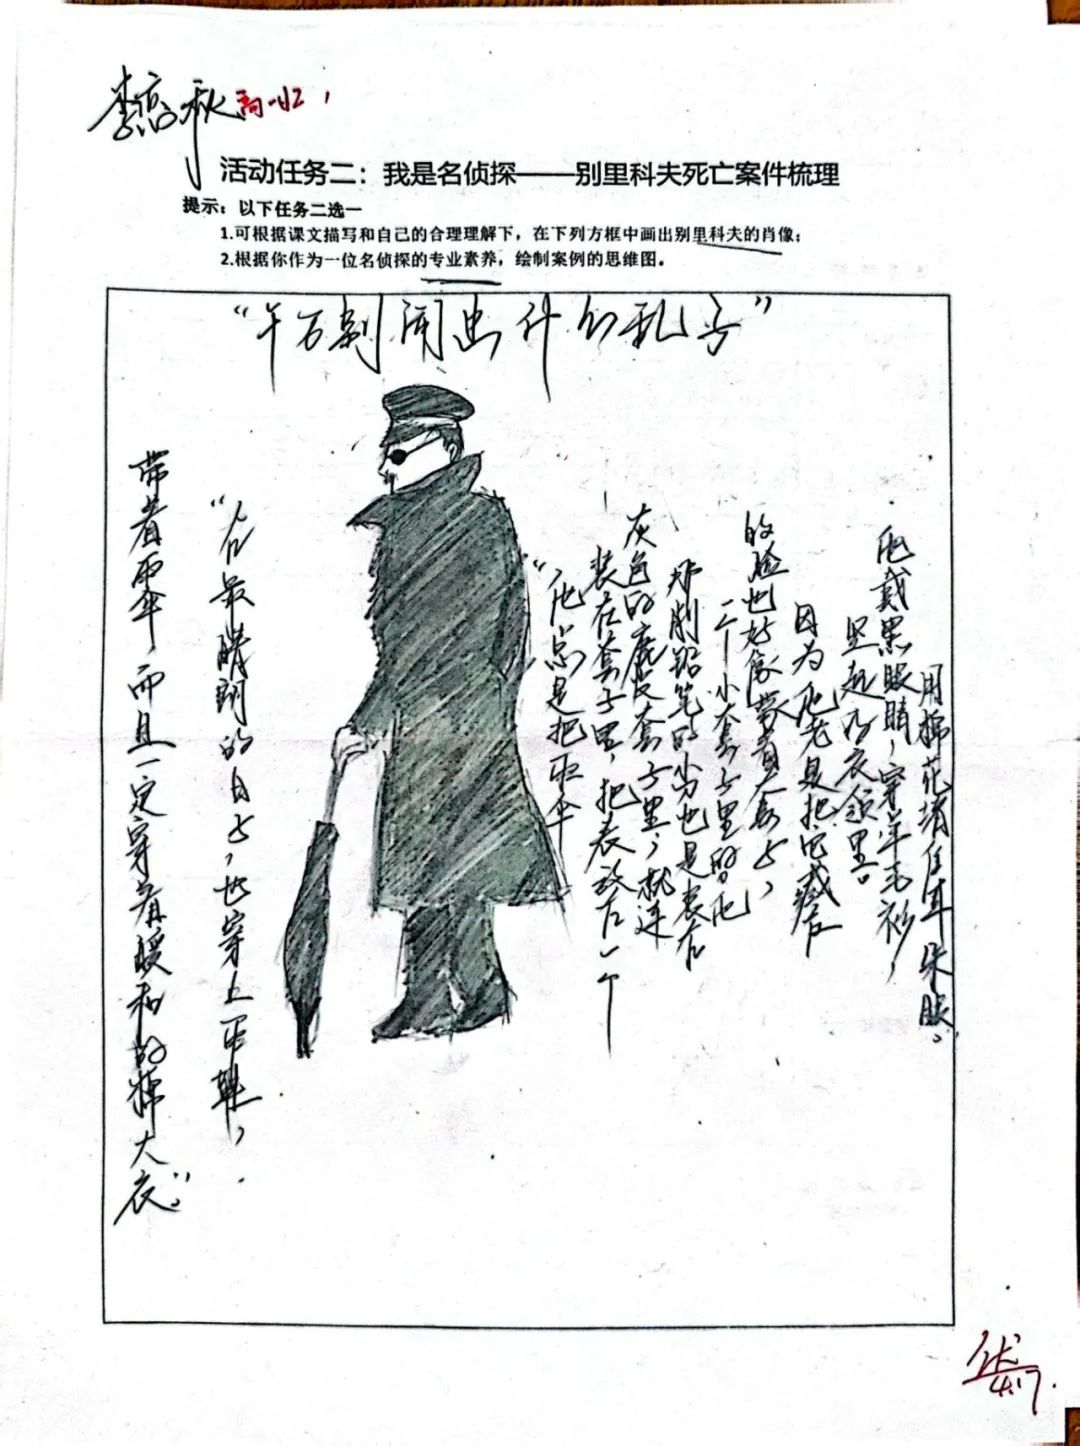 活动任务二：我是名侦探——别里科夫死亡案件梳理
提示：以下任务二选一
1.可根据课文描写和自己的合理理解下，在下列方框中画出别里科夫的肖像；
2.根据你作为一位名侦探的专业素养，绘制案例的思维图。
“千万别闹出什么乱子”
“在最晴朗的日子，也穿上雨鞋，
带着雨伞，而且一定穿着暖和的棉大衣。”
“他总是把雨伞
装在套子里，把表放在一个
灰色的鹿皮套子里，就连
那削铅笔的小刀也是装在
一个小套子里的。他
的脸也好像蒙着套子，
因为他老是把它藏在
竖起的衣领里。
他戴黑眼睛，穿羊毛衫，
用棉花堵住耳朵眼。
优
4.17.